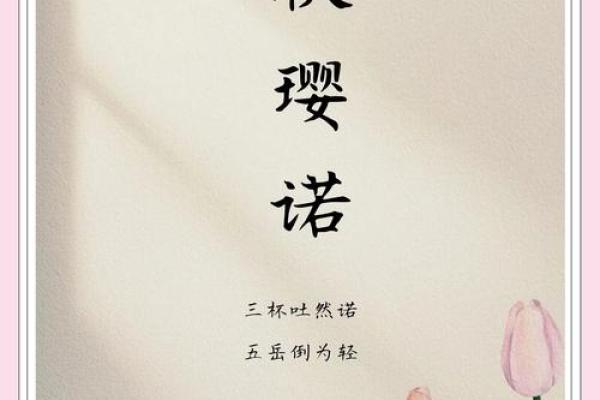 璎
诺
三杯吐然诺
五岳倒为轻